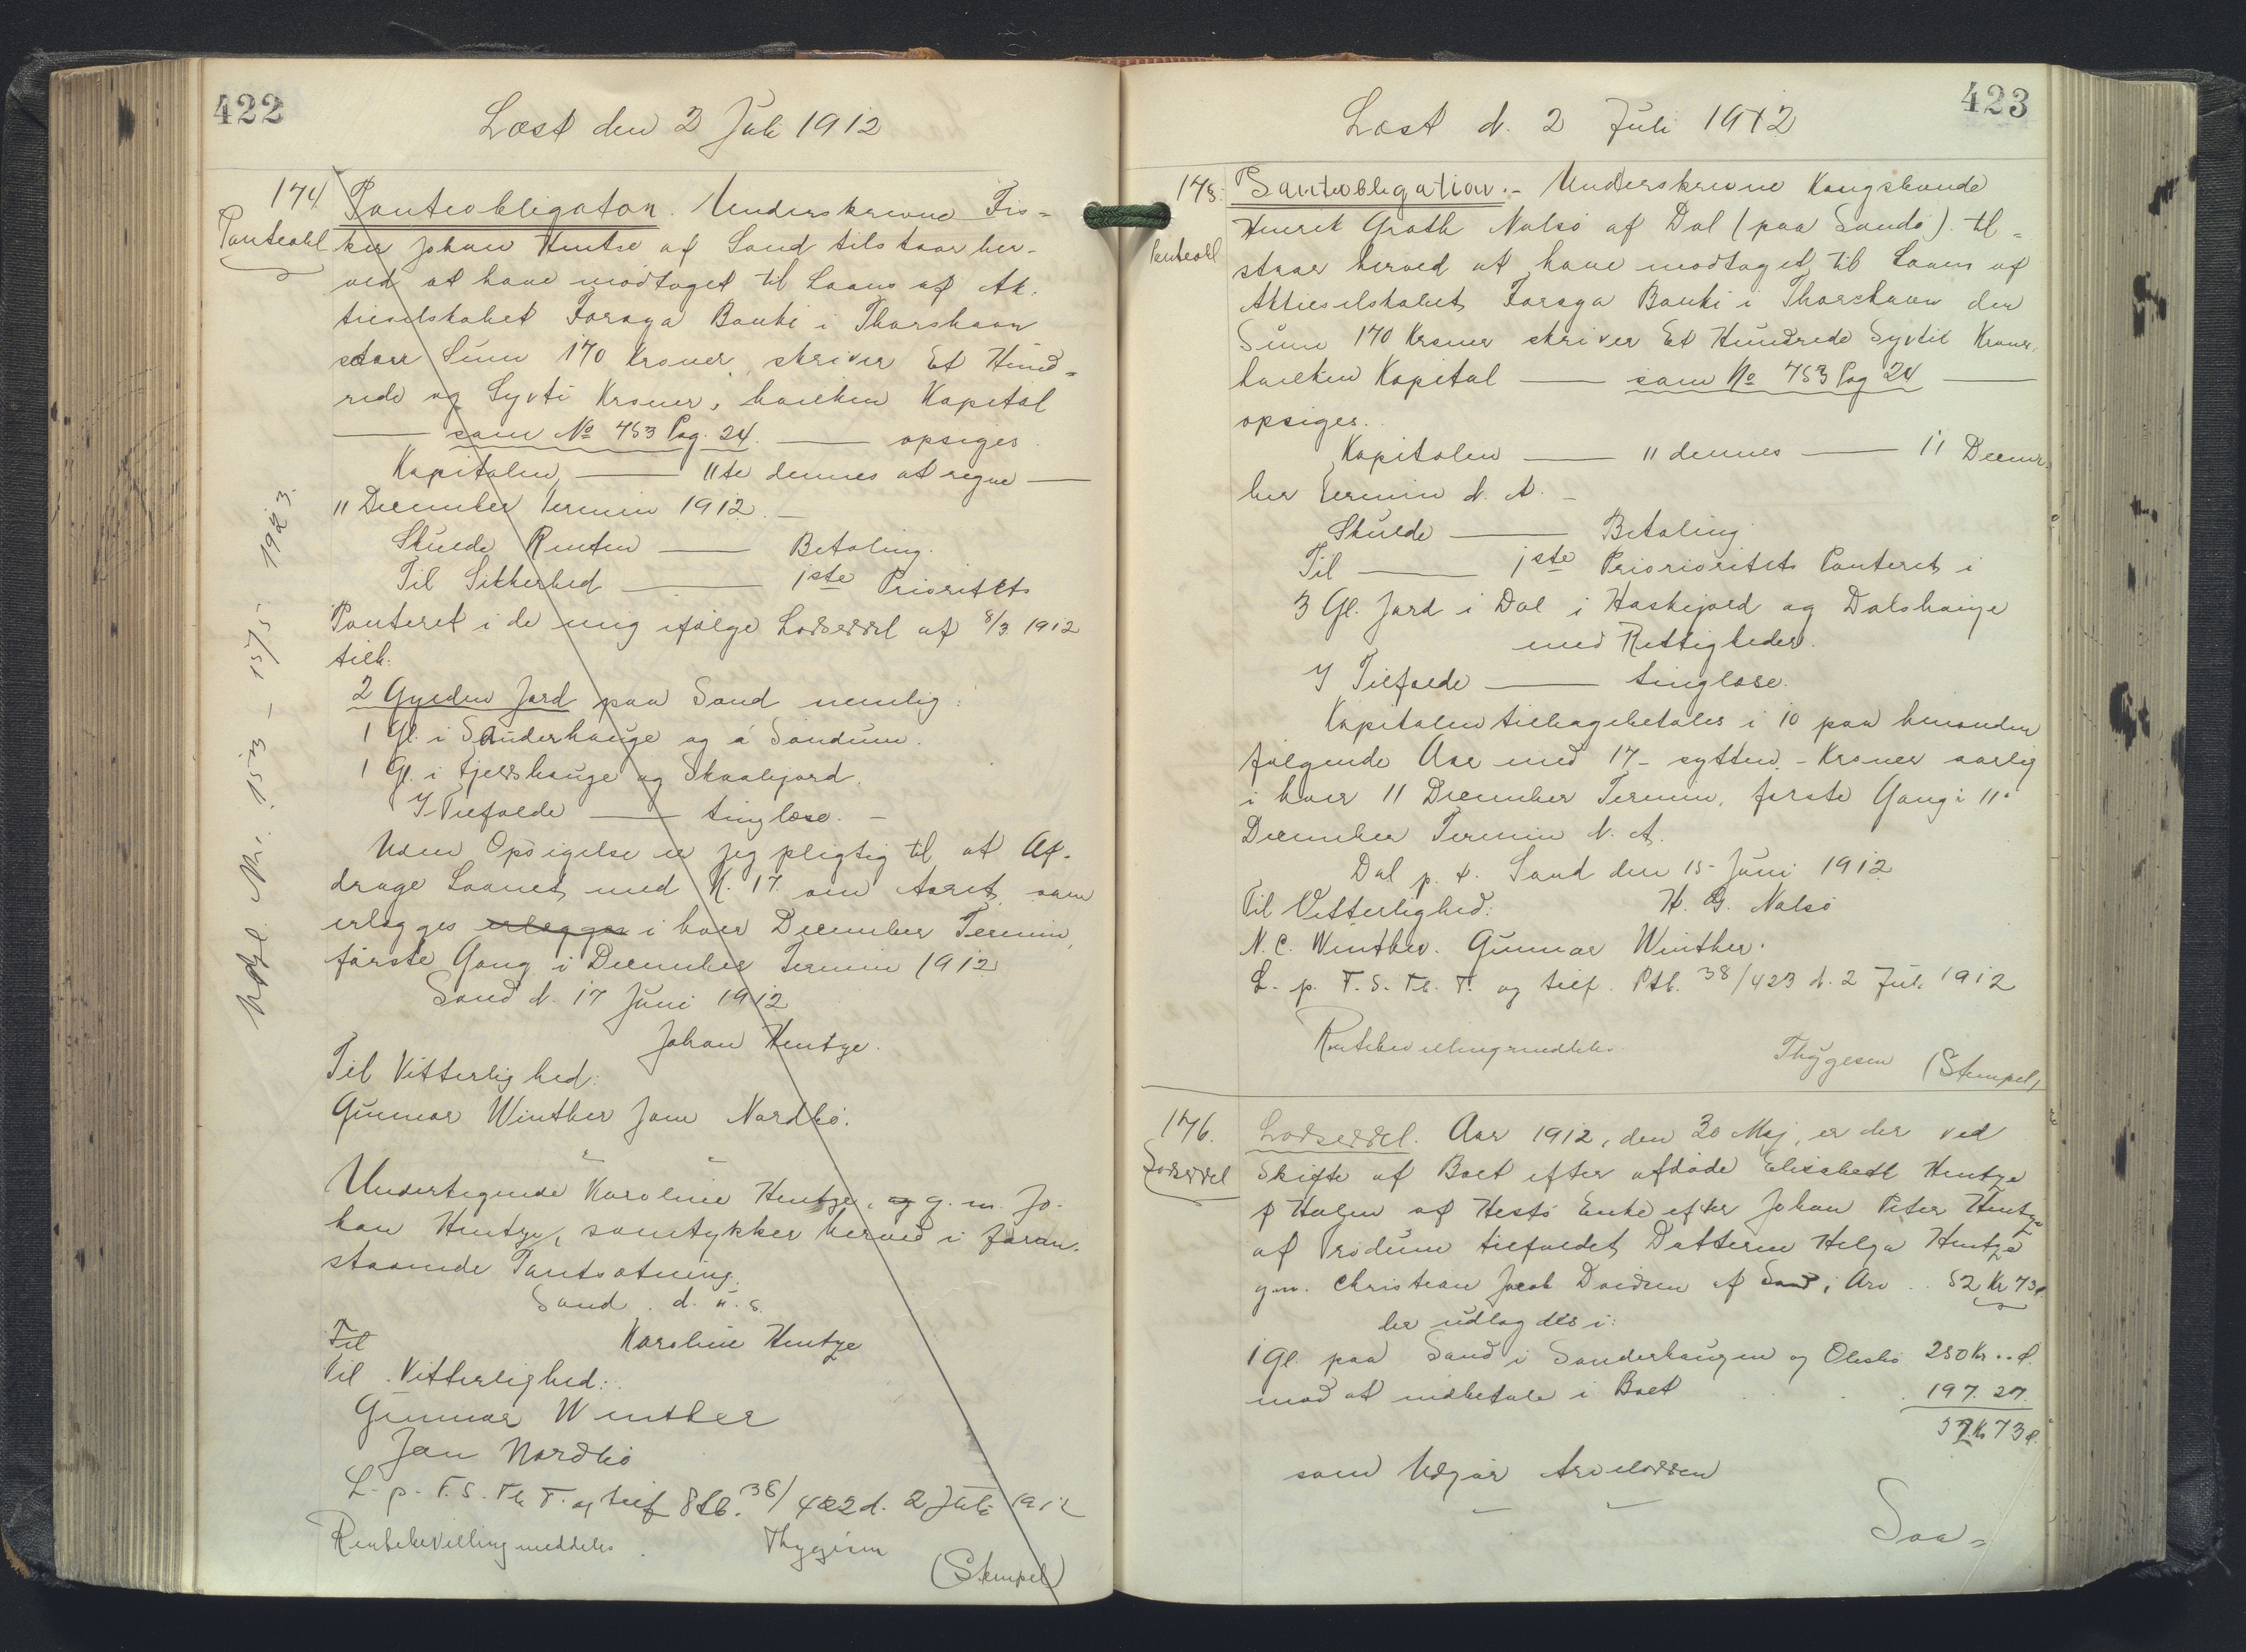 422
Læst den 2 Juli 1912
174
Panteobl
Panteobligation. Underskrevne Fis-
ker Johan Hentze af Sand tilstaar her-
ved at have modtaget til Laans af Ak-
tieselskabet Føroya Banki i Thorshavn
stor Sum 170 Kroner, skriver Et Hund-
rede og Syvti Kroner, hvilken Kapital
— som No 753 Pag. 24. — opsiges.
Kapitalen — 11te dennes at regne —
11 December Termin 1912. —
Skulde Renten — Betaling.
Til Sikkerhed — 1ste Prioritets
Panteret i de mig ifølge Lodseddel af 8/3 1912
tilh.
2 Gylden Jord paa Sand nemlig:
1 Gl. i Sønderhauge og á Sondum.
1 Gl. i Fjelshauge og Skaalejord.
I Tilfælde — tinglæse. —
Uden Opsigelse er jeg pligtig til at Af-
drage Laanet med K. 17 om Aaret, som
erlægges erlægges i hver December Termin,
første Gang i December Termin 1912
Sand d. 17 Juni 1912
Johan Hentze.
Til Vitterlighed:
Gunnar Winther Jam Nordbø.
Undertegnede Karoline Hentze, og g. m. Jo-
han Hentze, samtykker herved i foran-
staaende Pantsætning.
Sand. d. u. s.
Til Karoline Hentze
Til Vitterlighed:
Gunnar Winther
Jan Nordbø
L. p. F. S. Th. T. og tilf Ptb. 38/422 d. 2 Juli 1912
Rentebevilling meddeles. Thygesen
(Stempel)
Udsl. Nr. 153 - 15/5 1923.
423
Læst d. 2 Juli 1912
175.
Panteobl
Panteobligation. - Underskrevne Kongsbonde
Henrik Groth Nalsø af Dal (paa Sandø) til-
staar herved at have modtaget til Laans af
Aktieselskabet Føroya Banki i Thorshavn den
Sum 170 Kroner skriver Et Hundrede Syvti Kroner,
hvilken Kapital — som No 753 Pag 24 —
opsiges.
Kapitalen — 11 dennes — 11 Decem-
ber Termin d. A. -
Skulde — Betaling
Til — 1ste Priorioritets Panteret i
3 Gl. Jord i Dal i Haskjold og Dalshauge
med Rettigheder.
I Tilfælde — tinglæse.
Kapitalen tilbagebetales i 10 paa hinanden
følgende Aar med 17 - sytten - Kroner aarlig
i hver 11 December Termin, første Gang i 11
December Termin d. A.
Dal p. t. Sand den 15 Juni 1912
Til Vitterlighed: H. G. Nalsø
N. C. Winther. Gunnar Winther.
L. p. F. S. Th. T. og tilf. Ptb. 38/423 d. 2 Juli 1912
Rentebevilling meddeles Thygesen (Stempel)
176.
Lodseddel
Lodseddel. Aar 1912, den 30 Maj, er der ved
Skifte af Boet efter afdøde Elisabeth Hentze
f Halgen af Hestø Enke efter Johan Peter Hentze
af Trødum tilfaldet Datteren Helga Hentze
g.m. Christian Jacob Davidsen af Sand i Arv . 52 Kr 73 ø.
der udlagdes i:
1 Gl. paa Sand i Sønderhaugen og 250 Kr .. ø.
mod at indbetale i Boet . . . 197. 27.
52 Kr 73 ø.
som Udgør Arvelodden
Saa-